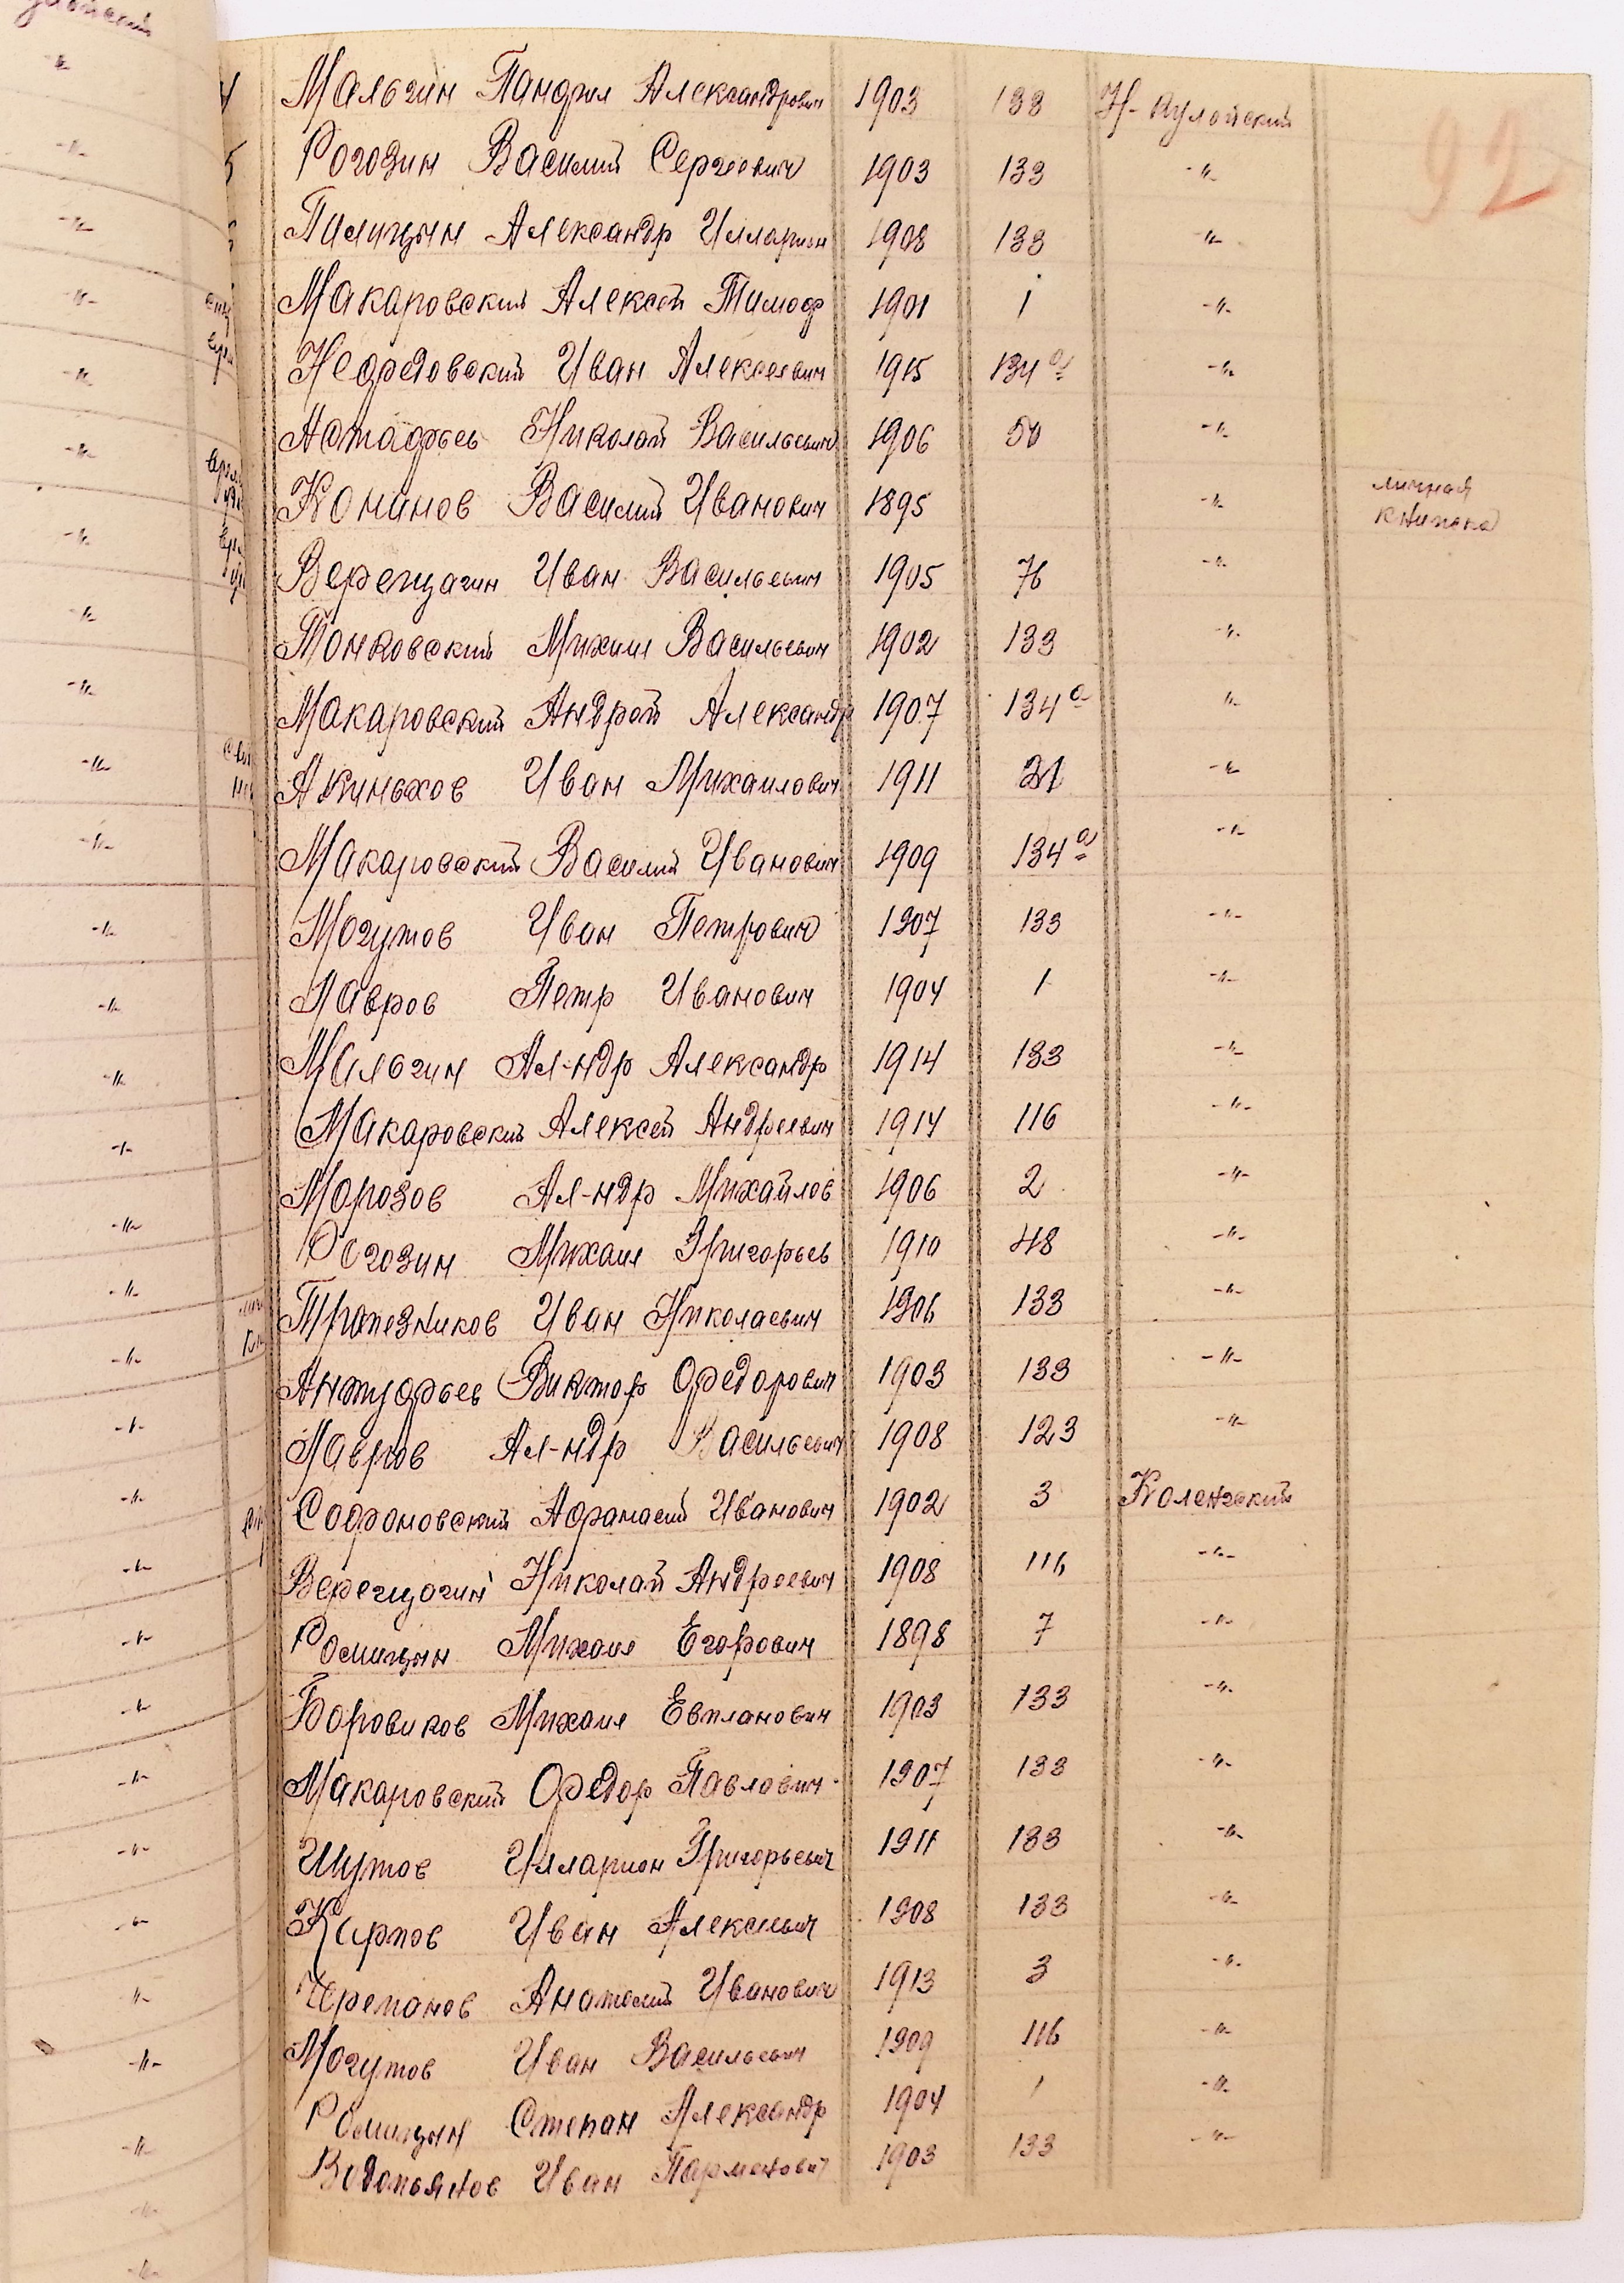 92
Мальгин Панфил Александрович 1903 133 Н-Кулойский
Рогозин Василий Сергеевич 1903 133 -"-
Пилицын Александр Илларион 1908 133 -"-
Макаровский Алексей Тимоф 1901 1 -"-
Нефедовский Иван Алексеевич 1915 134а -"-
Астафьев Николай Васильевич 1906 50 -"-
Кононов Василий Иванович 1895 -"- личная
книжка
Верещагин Иван Васильевич 1905 76 -"-
Тонковский Михаил Васильевич 1902 133 -"-
Макаровский Андрей Александр 1907 134а -"-
Акиньхов Иван Михаилович 1911 21 -"-
Макаровский Василий Иванович 1909 134а -"-
Могутов Иван Петрович 1907 133 -"-
Лавров Петр Иванович 1904 1 -"-
Мальгин Ал-ндр Александр 1914 133 -"-
Макаровский Алексей Андреевич 1914 116 -"-
Морозов Ал-ндр Михайлов 1906 2 -"-
Рогозин Михаил Григорьев 1910 48 -"-
Трапезников Иван Николаевич 1906 133 -"-
Антуфьев Виктор Федорович 1903 133 -"-
Лавров Ал-ндр Васильевич 1908 123 -"-
Софроновский Афанасий Иванович 1902 3 Коленгский
Верещагин Николай Андреевич 1908 116 -"-
Ромицын Михаил Егорович 1898 7 -"-
Боровиков Михаил Евпланович 1903 133 -"-
Макаровский Федор Павлович 1907 133 -"-
Шутов Илларион Григорьевич 1911 133 -"-
Карпов Иван Алексеевич 1908 133 -"-
Черепанов Анатолий Иванович 1913 3 -"-
Могутов Иван Васильевич 1909 116 -"-
Ромицын Степан Александр 1904 1 -"-
Водомьянов Иван Парменович 1903 133 -"-